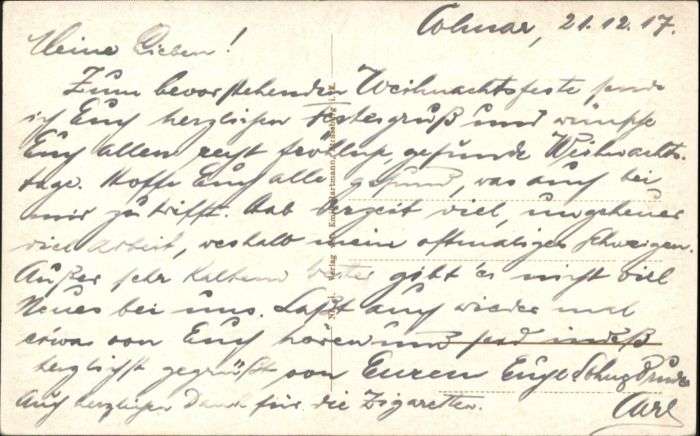 Colmar, 21.12.17.
Meine Lieben!
Zum bevorstehenden Weihnachtsfeste sende
ich Euch herzlichen Festesgruß und wünsche
Euch allen recht frohe, gesunde Weihnachts-
tage. Hoffe Euch alle gesund, was auch bei
mir zutrifft. Hab derzeit viel, ungeheuer
viel Arbeit, weshalb mein oftmaliges Schweigen.
Außer sehr kaltem Wetter gibt es nicht viel
Neues bei uns. Laßt auch wieder mal
etwas von Euch hören und seid indeß
herzlichst gegrüßt von Eurem Euch Bruder
Auch herzlichen Dank für die Zigaretten. Carl
Verlag von Hartmann